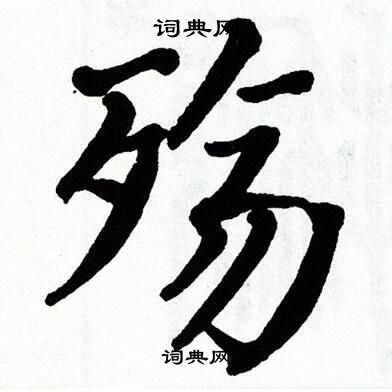 词典网
殇
词典网